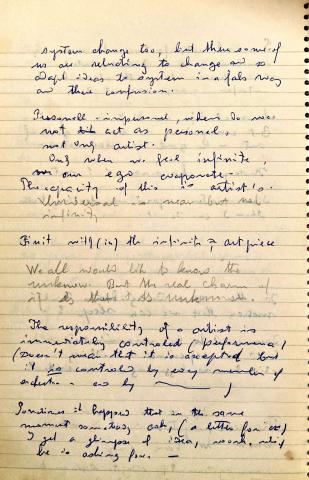 system change too, but then some of
us are reluctant to change an so
adapt ideas to system in a fals way
an then confusion.
Personell - impersonal, where do we
not act as personel,
not only artist.
Only when we feel infinite,
our ego evaporate -
The capacity of this is artist is.
Universal is near but not
infinity
Finit with (in) the infinite = art piece
We all would like to know the
unknown. But the real charm of
it is that it is unknown.
The responsibility of a artist is
immediatly controled (performance)
(Doesn't mean that it is accepted but
it is controled by every member of
by
Sometimes it happens that in the same
moment somebody ask, (a letter for ex)
I get a glimpse of idea, work, which
he is asking for. —